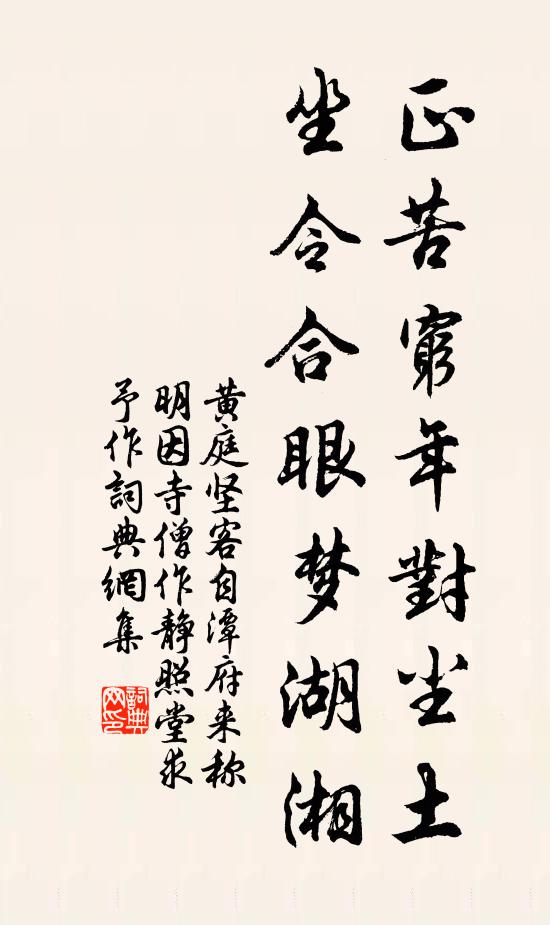 正苦窮年對尘土
坐令合眼梦湖湘
黄庭坚客自潭府来称
明因寺僧作静照堂求
予作詞典網集
詞典網印